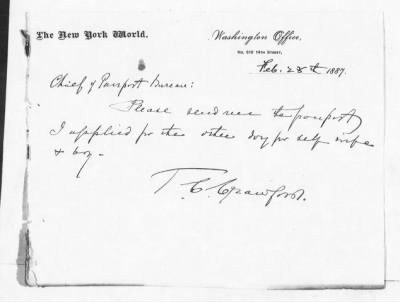 The New York World.
Washington Office,
No. 515 14th Street,
Feb. 28th 1887.
Chief of Passport Bureau:
Please send me the passport
I applied for the other day for self wife
& boy -
T. C. Crawford.